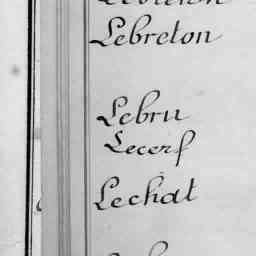 Lebreton
Lebru
Lecerf
Lechat